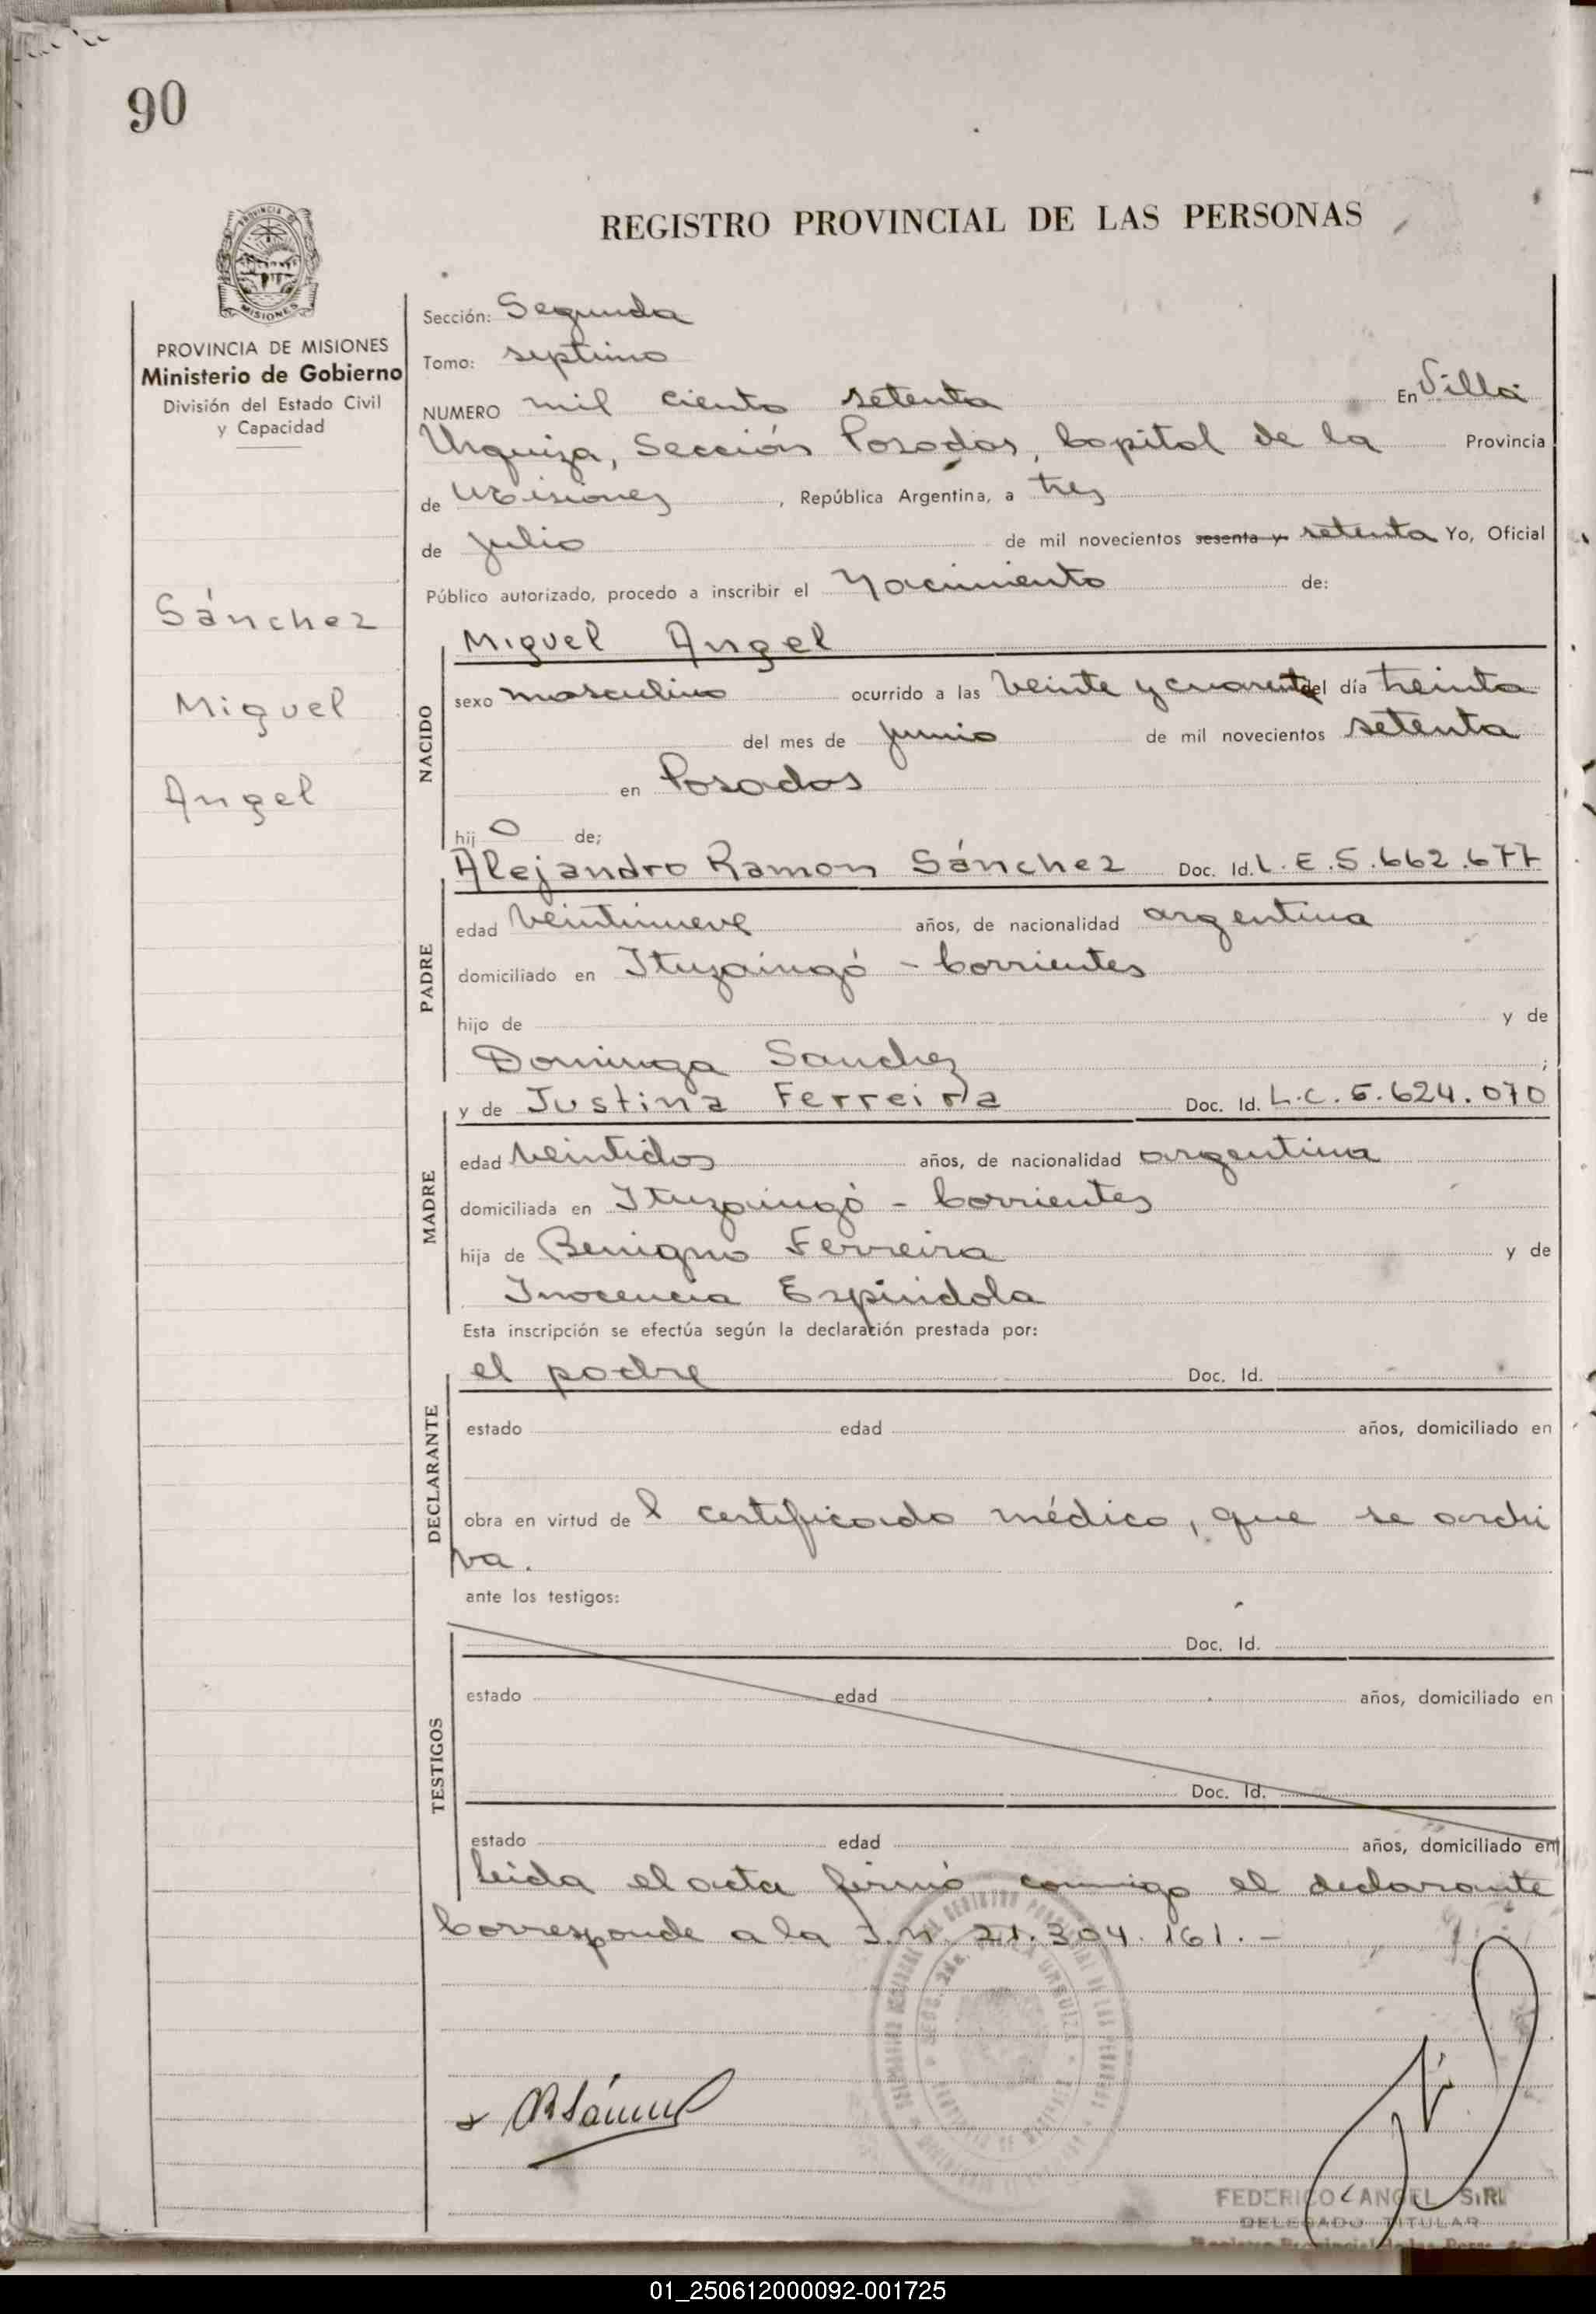 90
REGISTRO PROVINCIAL DE LAS PERSONAS
PROVINCIA DE
MISIONES
PROVINCIA DE MISIONES
Ministerio de Gobierno
División del Estado Civil
y Capacidad
Sánchez
Miguel
Angel
Sección: Segunda
Tomo: septimo
NUMERO mil ciento setenta En Villa
Urquiza, Sección Posadas, Capital de la Provincia
de Misiones, República Argentina, a tres
de julio de mil novecientos sesenta y setenta Yo, Oficial
Público autorizado, procedo a inscribir el Nacimiento de:
NACIDO
Miguel Angel
sexo masculino ocurrido a las veinte y cuarenta del día treinta
del mes de junio de mil novecientos setenta
en Posadas
hij o de;
Alejandro Ramon Sánchez Doc. Id. L.E.5.662.677
PADRE
edad veintinueve años, de nacionalidad argentina
domiciliado en Ituzaingó - Corrientes
hijo de y de
Dominga Sanchez ;
y de Justina Ferreira Doc. Id. L.C.6.624.070
MADRE
edad veintidos años, de nacionalidad argentina
domiciliada en Ituzaingó - Corrientes
hija de Benigno Ferreira y de
Inocencia Espindola
Esta inscripción se efectúa según la declaración prestada por:
el padre Doc. Id.
DECLARANTE
estado edad años, domiciliado en
obra en virtud de l certificado médico, que se archi
va.
ante los testigos:
Doc. Id.
TESTIGOS
estado edad años, domiciliado en
Doc. Id.
estado edad años, domiciliado en
Leida el acta firmó conmigo el declarante
Corresponde a la I.N. 21.304.161.-
FEDERICO ANGEL SIRI
DELEGADO TITULAR
01_250612000092-001725